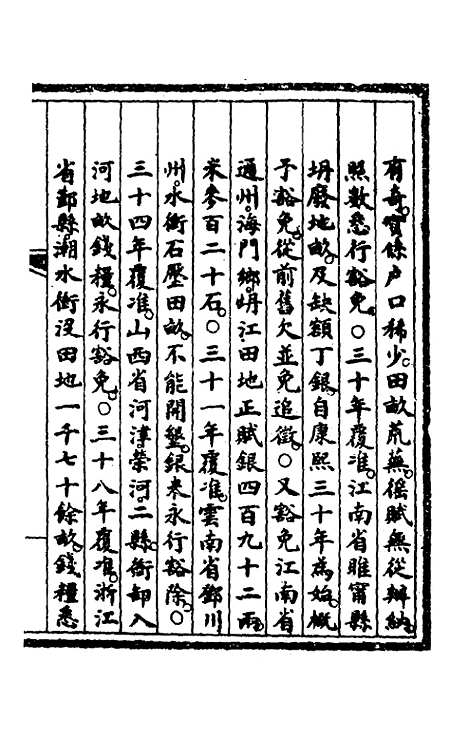 有奇。實係戶口稀少。田畝荒蕪。徭賦無從辦納。
照數悉行豁免。○三十年覆准。江南省睢甯縣
坍廢地畝。及缺額丁銀。自康熙三十年為始。概
予豁免。從前舊欠並免追徵。○又豁免江南省
通州。海門鄉。坍江田地正賦銀四百九十二兩。
米參百二十石。○三十一年覆准。雲南省鄧川
州。水衝石壓田畝。不能開墾。銀米永行豁除。○
三十四年覆准。山西省河津。榮河。二縣。衝卸入
河地畝錢糧。永行豁免。○三十八年覆准。浙江
省鄞縣潮水衝沒田地一千七十餘畝。錢糧悉